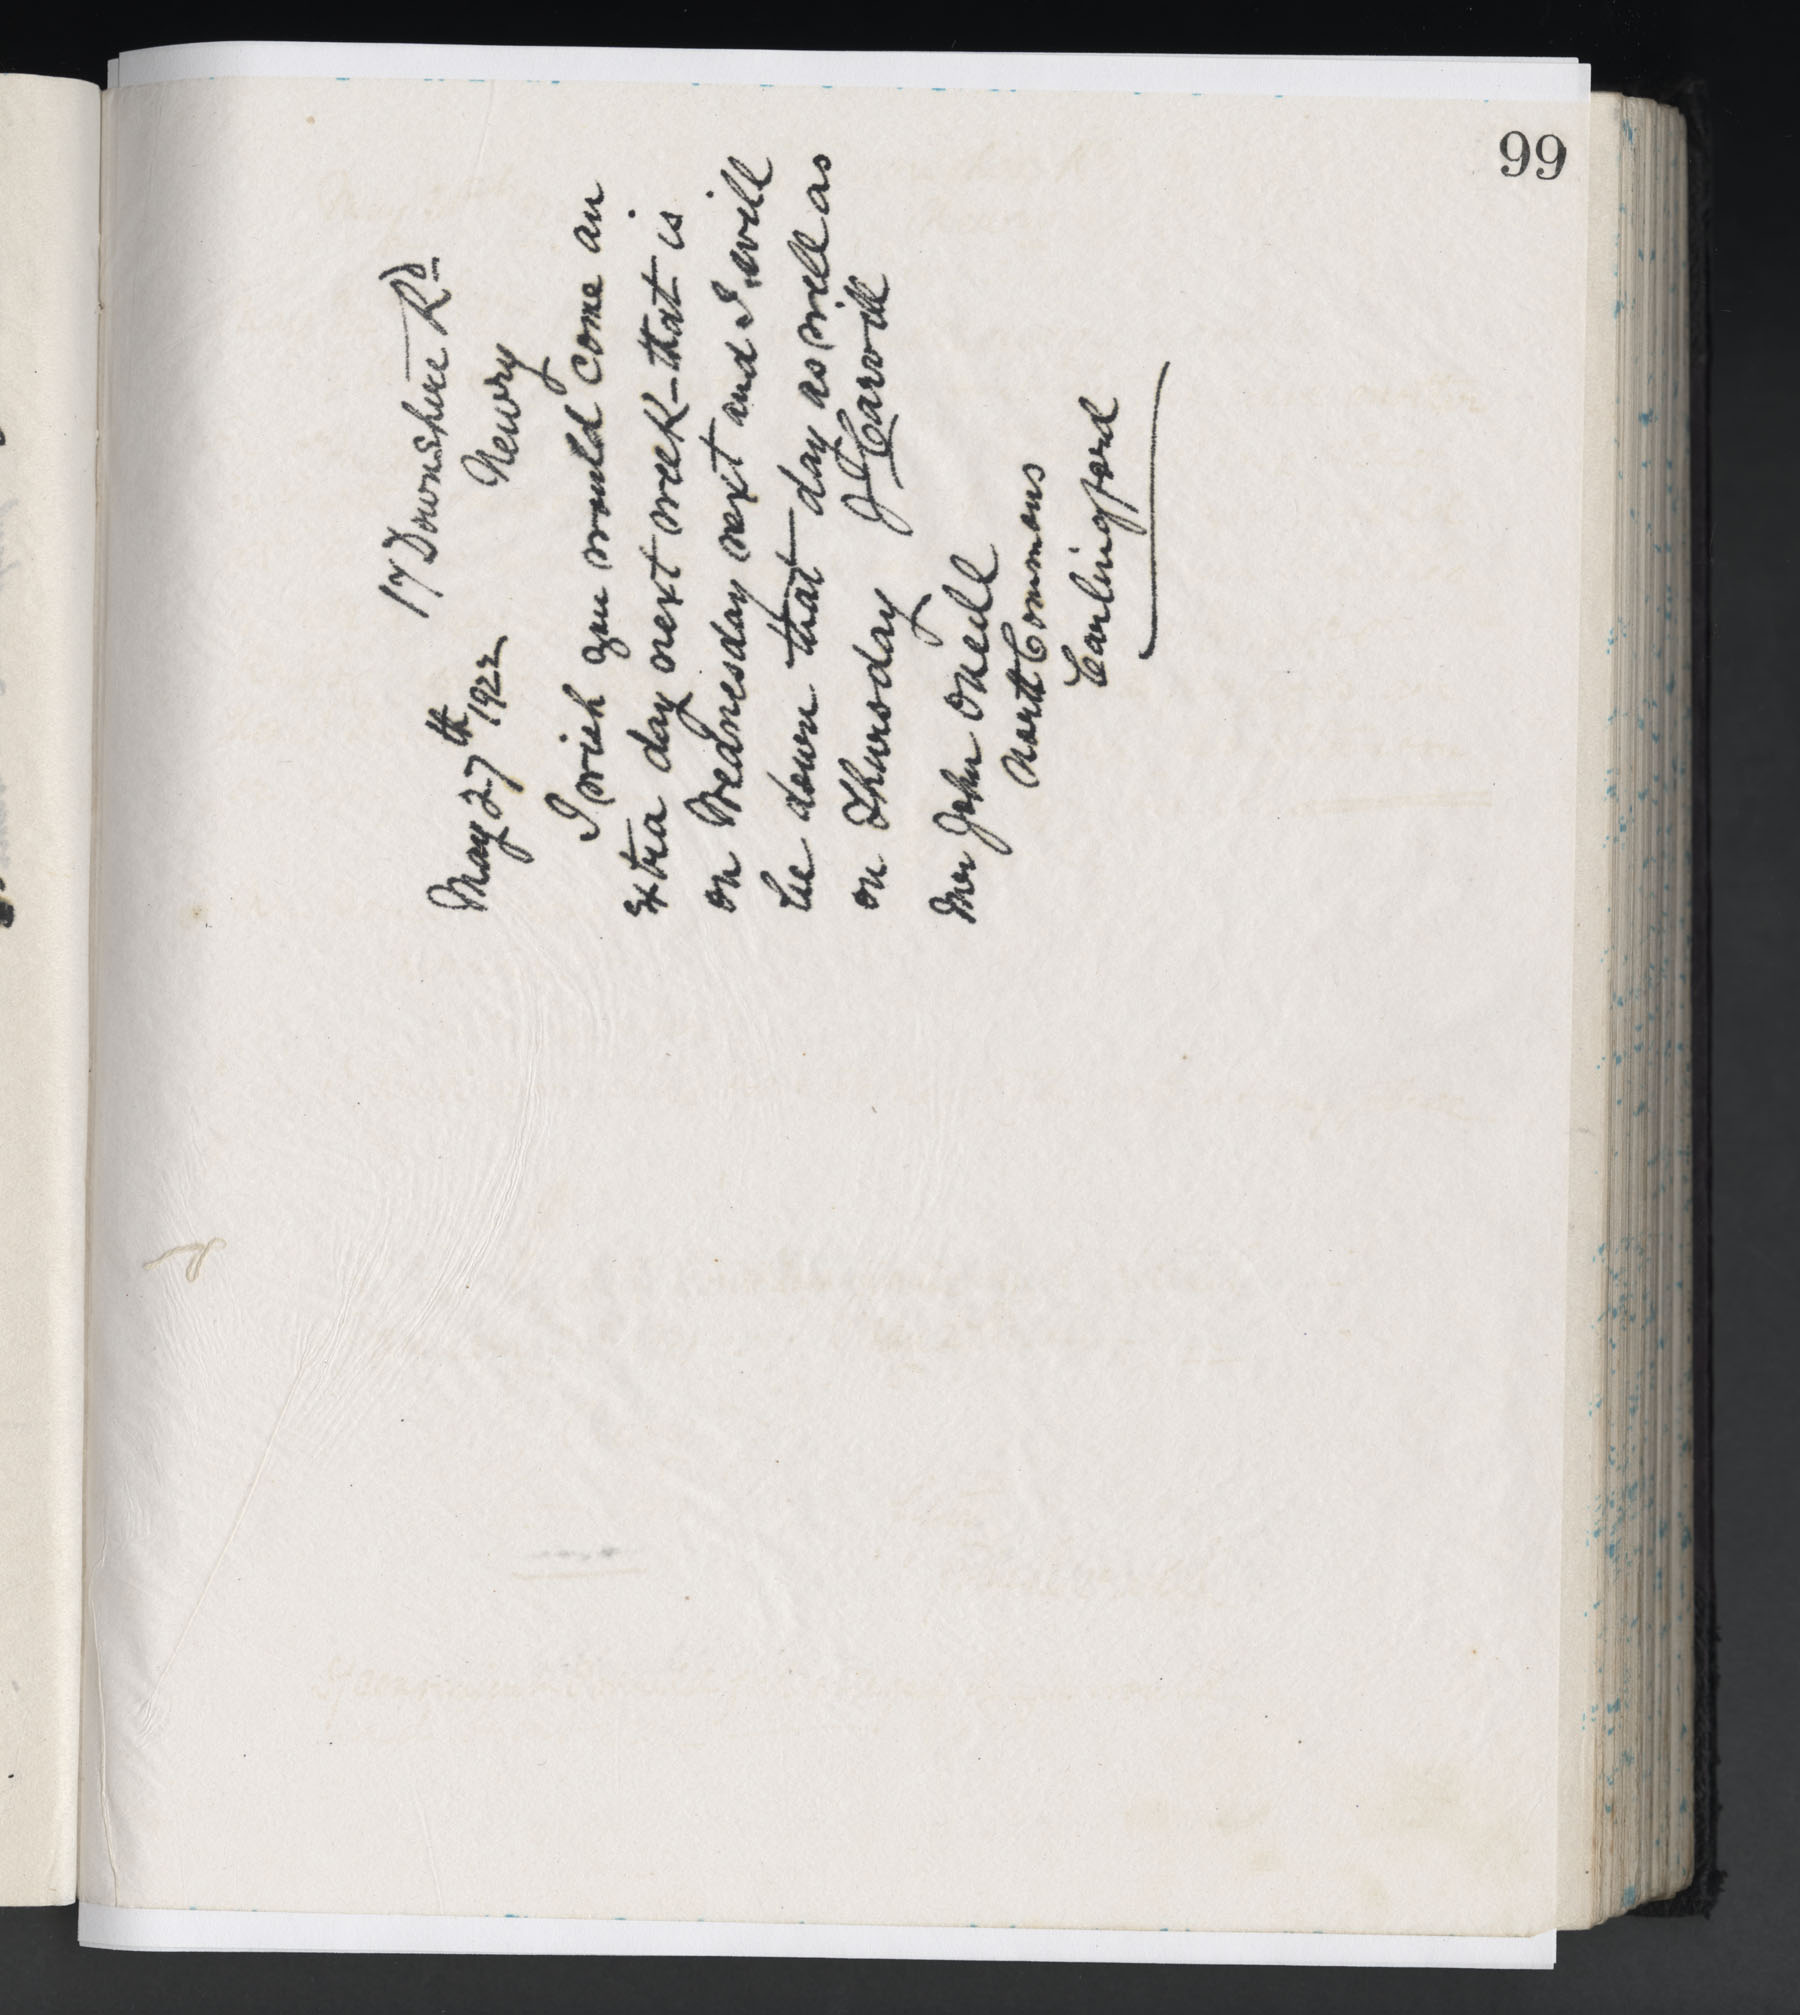 99
17 Downshire Rd
May 27th 1922 Newry
I wish you would come an
extra day next week - that is
on Wednesday next and I will
be down that day as well as
on Thursday J J Carvill
Mr John ONeill
North Commons
Carlingford